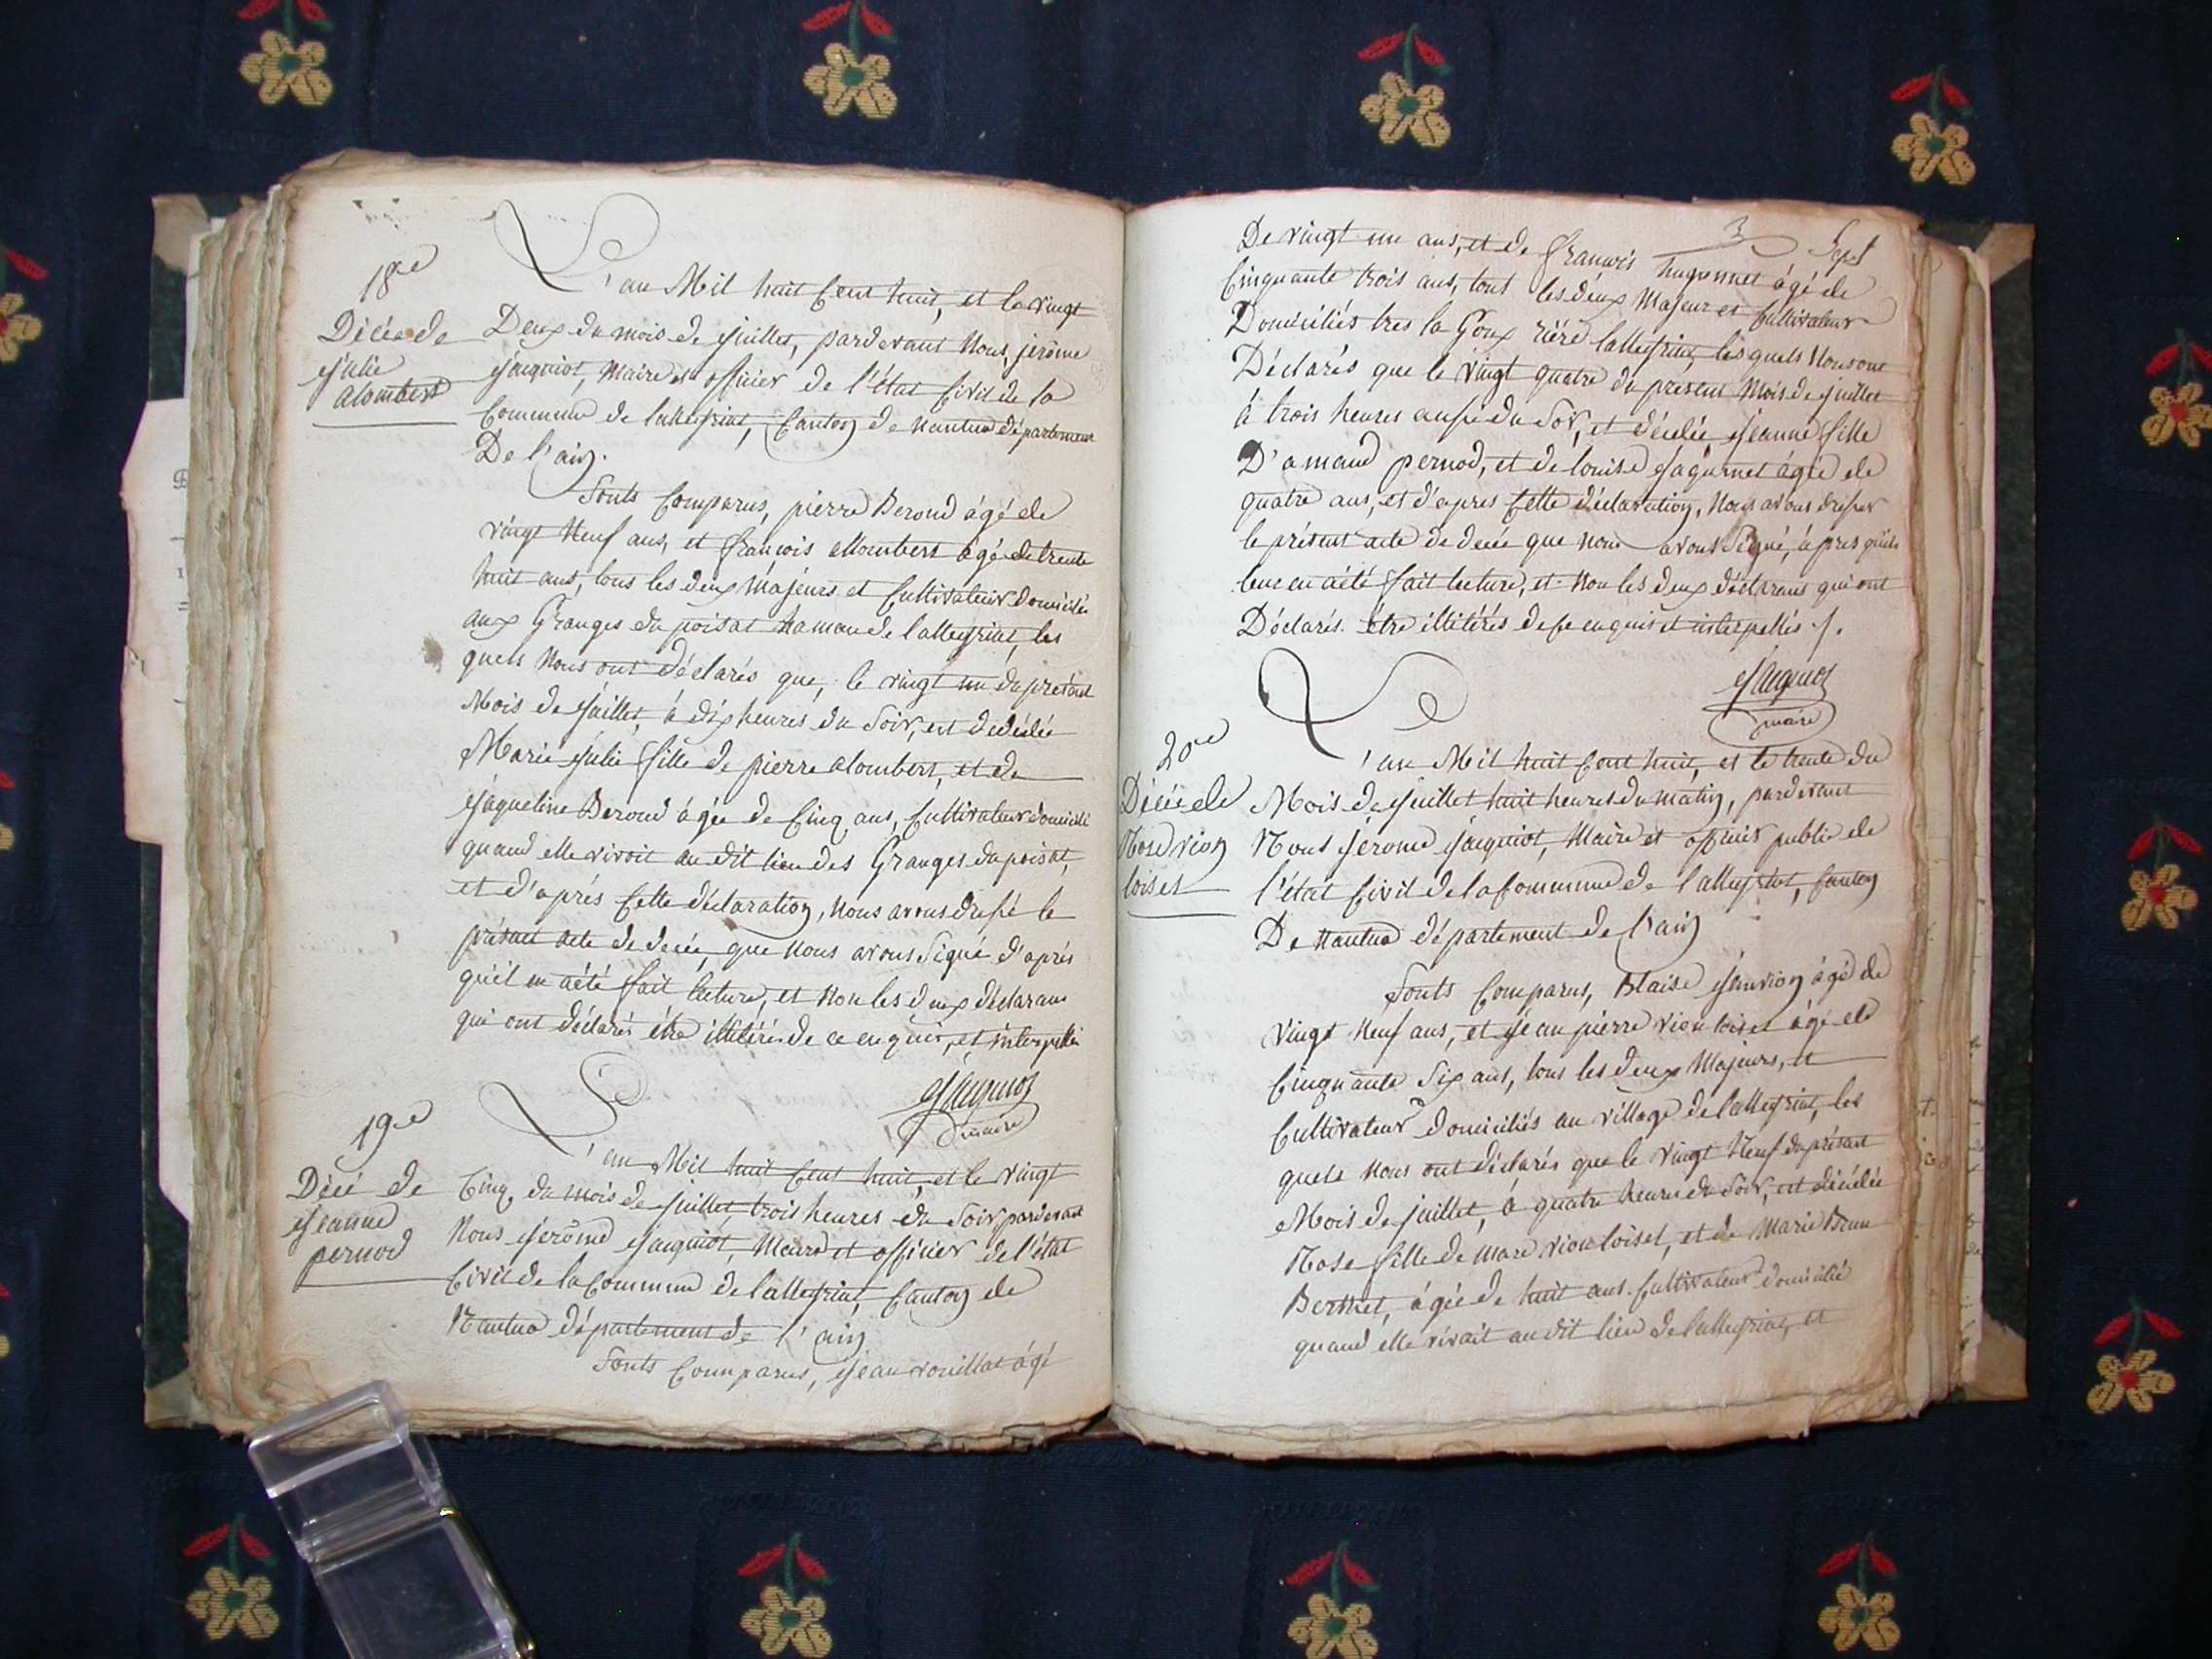 18e
Décée de
Julie
alombert
L'an Mil huit Cent huit, et le vingt
Deux du mois de juillet, pardevant Nous, jerôme
jacquiot, Maire et officier de l'état Civil de la
Commune de lalleyriat, Canton de Nantua département
De l'ain.
Sonts Comparus, pierre Beroud âgé de
vingt Neuf ans, et françois allombert âgé de trente
huit ans, tous les deux Majeurs et Cultivateur domicilié
aux Granges du poisat hamau de lalleyriat, les
quels Nous ont déclarés que, le vingt un du présent
Mois de juillet, à dix heures du Soir, est dedédée
Marie julie fille de pierre alombert, et de
jaqueline Beroud âgée de Cinq ans, Cultivateur domicilié
quand elle vivoit au dit lieu des Granges du poisat,
et d'après Cette déclaration, Nous avons dressé le
présent acte de decée, que Nous avons Signé d'après
qu'il en a été fait lecture, et Non les deux déclarans
qui ont déclarés être illitéré de ce enquis, et interpellé
jacquiot
maire
19e
Décé de
jeanne
pernod
L'an Mil huit Cent huit et le vingt
Cinq du mois de juillet, trois heures du Soir pardevant
Nous jerôme jacquiot, Maire et officier de l'état
Civil de la Commune de lalleyriat, Canton de
Nantua département de l'ain
Sonts Comparus, jean rouillat âgé
3
Sept
De vingt un ans, et de francois hugonnet âgé de
Cinquante trois ans, tous les deux Majeur et Cultivateur
Domiciliés la Goux rière lalleyriat, lesquels Nous ont
Déclarés que le vingt quatre du present Mois de juillet
à trois heures aussi du Soir, et décédée jeanne fille
D'amand pernod, et de louise jagurnet âgée de
quatre ans, et d'apres Cette déclaration, Nous avons dresser
le présent acte de decée que nous avons Signé, après quils
leur en a été fait lecture, et Non les deux déclarans qui ont
Déclarés être illitérés de Ce enquis et interpellés ./.
jacquiot
maire
20e
Décée de
Rose vion
loiset
L'an Mil huit Cent huit, et le trente du
Mois de juillet huit heures du matin, pardevant
Nous jerome jacquiot, Maire et officier public de
l'état Civil de la Commune de lalleyriat, Canton
De Nantua département de l'ain
Sonts Comparus, Blaise janvion âgé de
vingt Neuf ans, et jean pierre vion loiset âgé de
Cinquante Six ans, tous les deux Majeurs, et
Cultivateur domiciliés au village de lalleyriat, les
quels Nous ont déclarés que le vingt Neuf du présent
Mois de juillet, à quatre heures du Soir, est décédée
Rose fille de Marc vion loiset, et de Marie Brun
Berthet, âgée de huit ans Cultivateur domicilié
quand elle vivait au dit lieu de lalleyriat, et